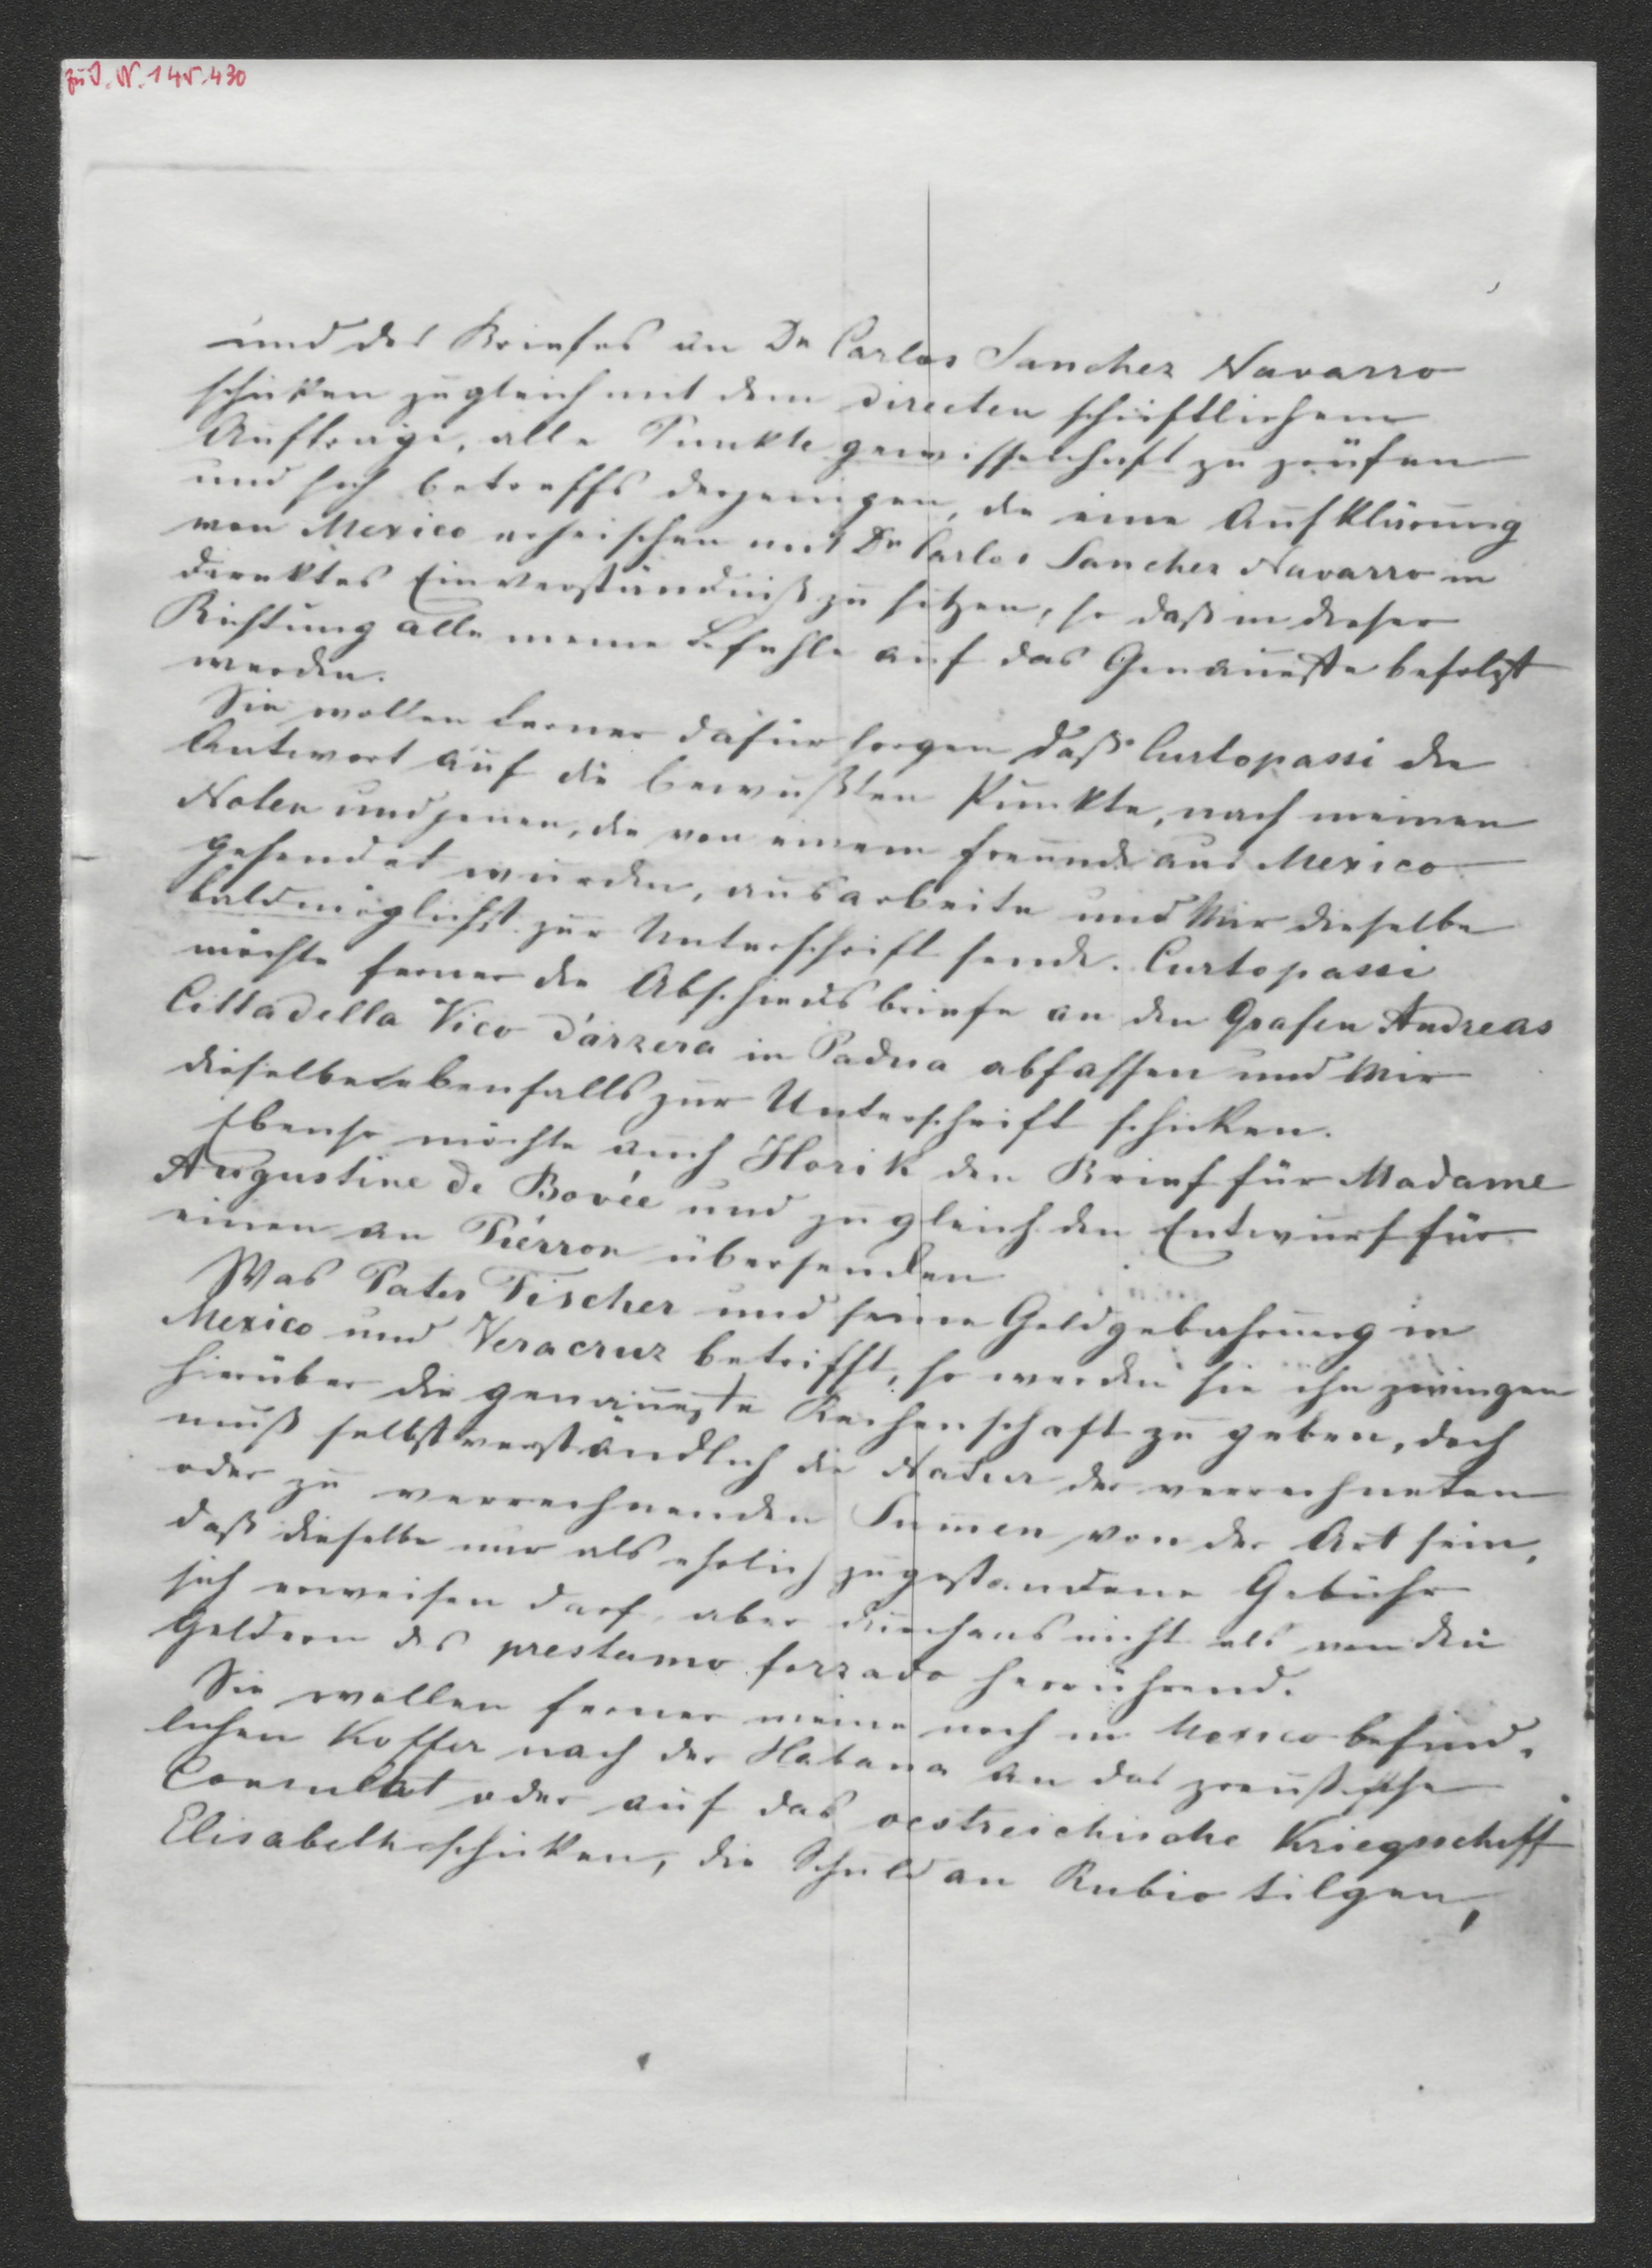 zu I. N. 145.430
und des Briefes an Dn Carlos Sanchez Navarro
schicken zugleich mit dem directen schriftlichem
Auftrage, alle Punkte gewissenhaft zu prüfen
und sich betreffs derjenigen, die eine Aufklärung
von Mexico erheischen mit Dn Carlos Sanchez Navarro in
direktes Einverständniß zu setzen, so daß in dieser
Richtung alle meine Befehle auf das Genaueste befolgt
werden.
Sie wollen ferner dafür sorgen daß Curtopassi die
Antwort auf die bewußten Punkte, nach meinen
Noten und jenen, die von einem Freunde aus Mexico
gesendet wurden, ausarbeite und Mir dieselbe
baldmöglichst zur Unterschrift sende. Curtopassi
möchte ferner die Abschiedsbriefe an den Grafen Andreas
Cittadella Vico d'arzera in Padua abfassen und Mir
dieselben ebenfalls zur Unterschrift schicken.
Ebenso möchte auch Horik den Brief für Madame
Augustine de Bovée und zugleich den Entwurf für
einen an Piérron übersenden
Was Pater Fischer und seine Geldgebahrung in
Mexico und Veracruz betrifft, so werden sie ihn zwingen
hierüber die genaueste Rechenschaft zu geben, doch
muß selbstverständlich die Natur der verrechneten
oder zu verrechnenden Sumen von der Art sein,
daß dieselbe nur als ehrlich zugestandene Gebühr
sich erweisen darf, aber durchaus nicht als von den
Geldern des prestamo forzado herrührend.
Sie wollen ferner meine noch in Mexico befind-
lichen Koffer nach der Habana an das preußische
Consulat oder auf das oestreichische Kriegsschiff
Elisabeth schicken, die Schuld an Rubio tilgen,